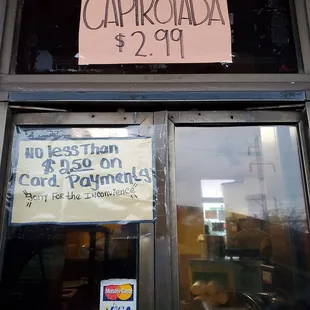 CAPIROTADA
$2.99
No less Than
$2.50 on
Card Payments
"Sorry For the Inconvenience"
MasterCard
VISA